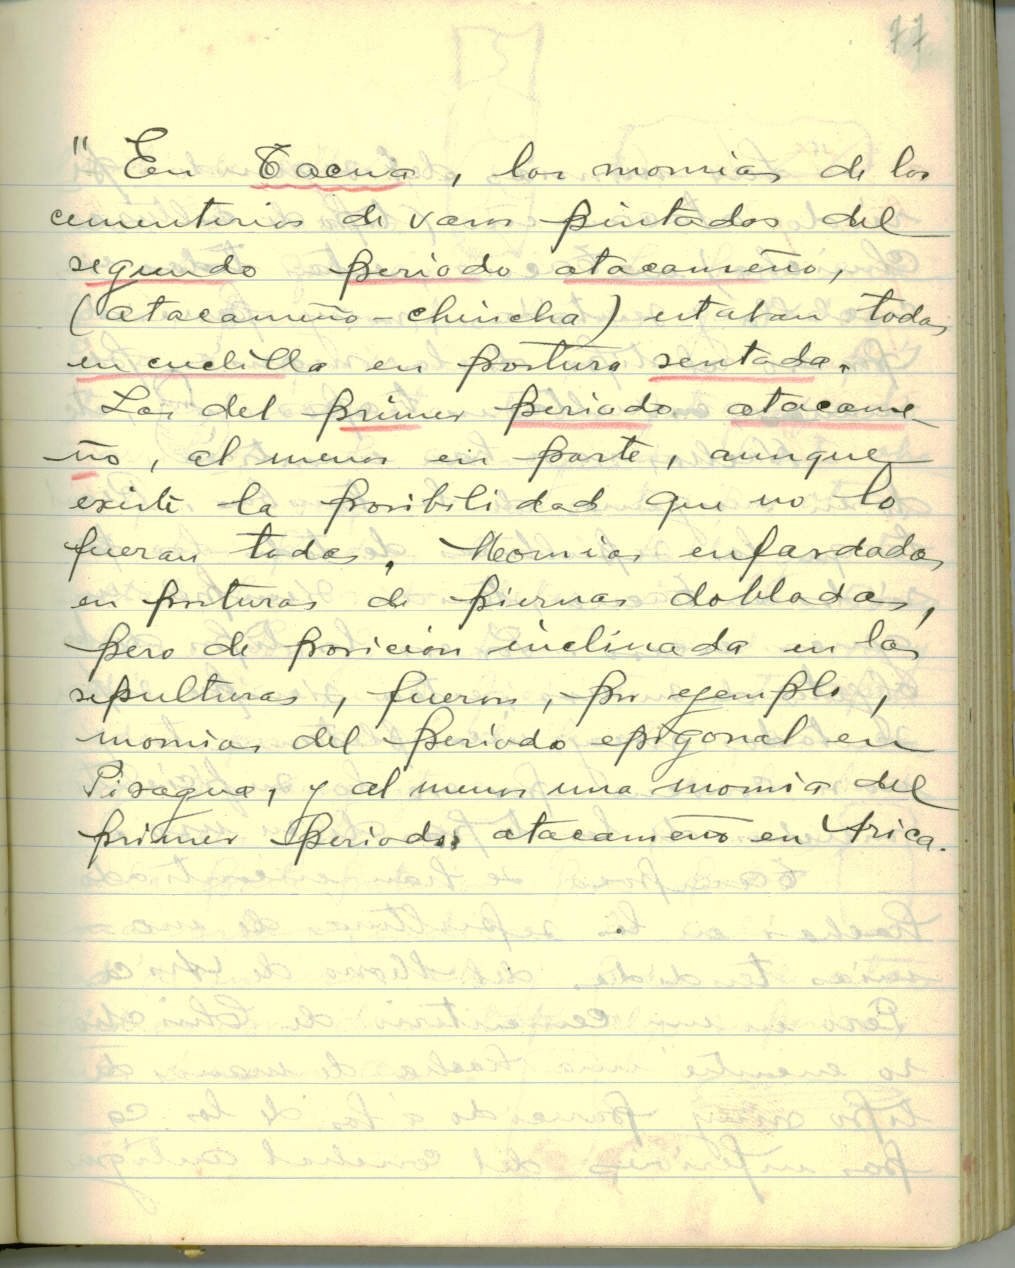 77
" En Tacna, las momias de los
cementerios de vasos pintados del
segundo periodo atacameño,
(atacameño-chincha) estaban todas
en cuclilla en postura sentada.
Las del primer periodo atacame-
ño, al menos en parte, aunque
existe la posibilidad que no lo
fueran todas. Momias enfardadas
en posturas de piernas dobladas,
pero de posición inclinada en las
sepulturas, fueron, por ejemplo,
momias del periodo epigonal en
Pisagua, y al menos una momia del
primer periodo atacameño en Arica.